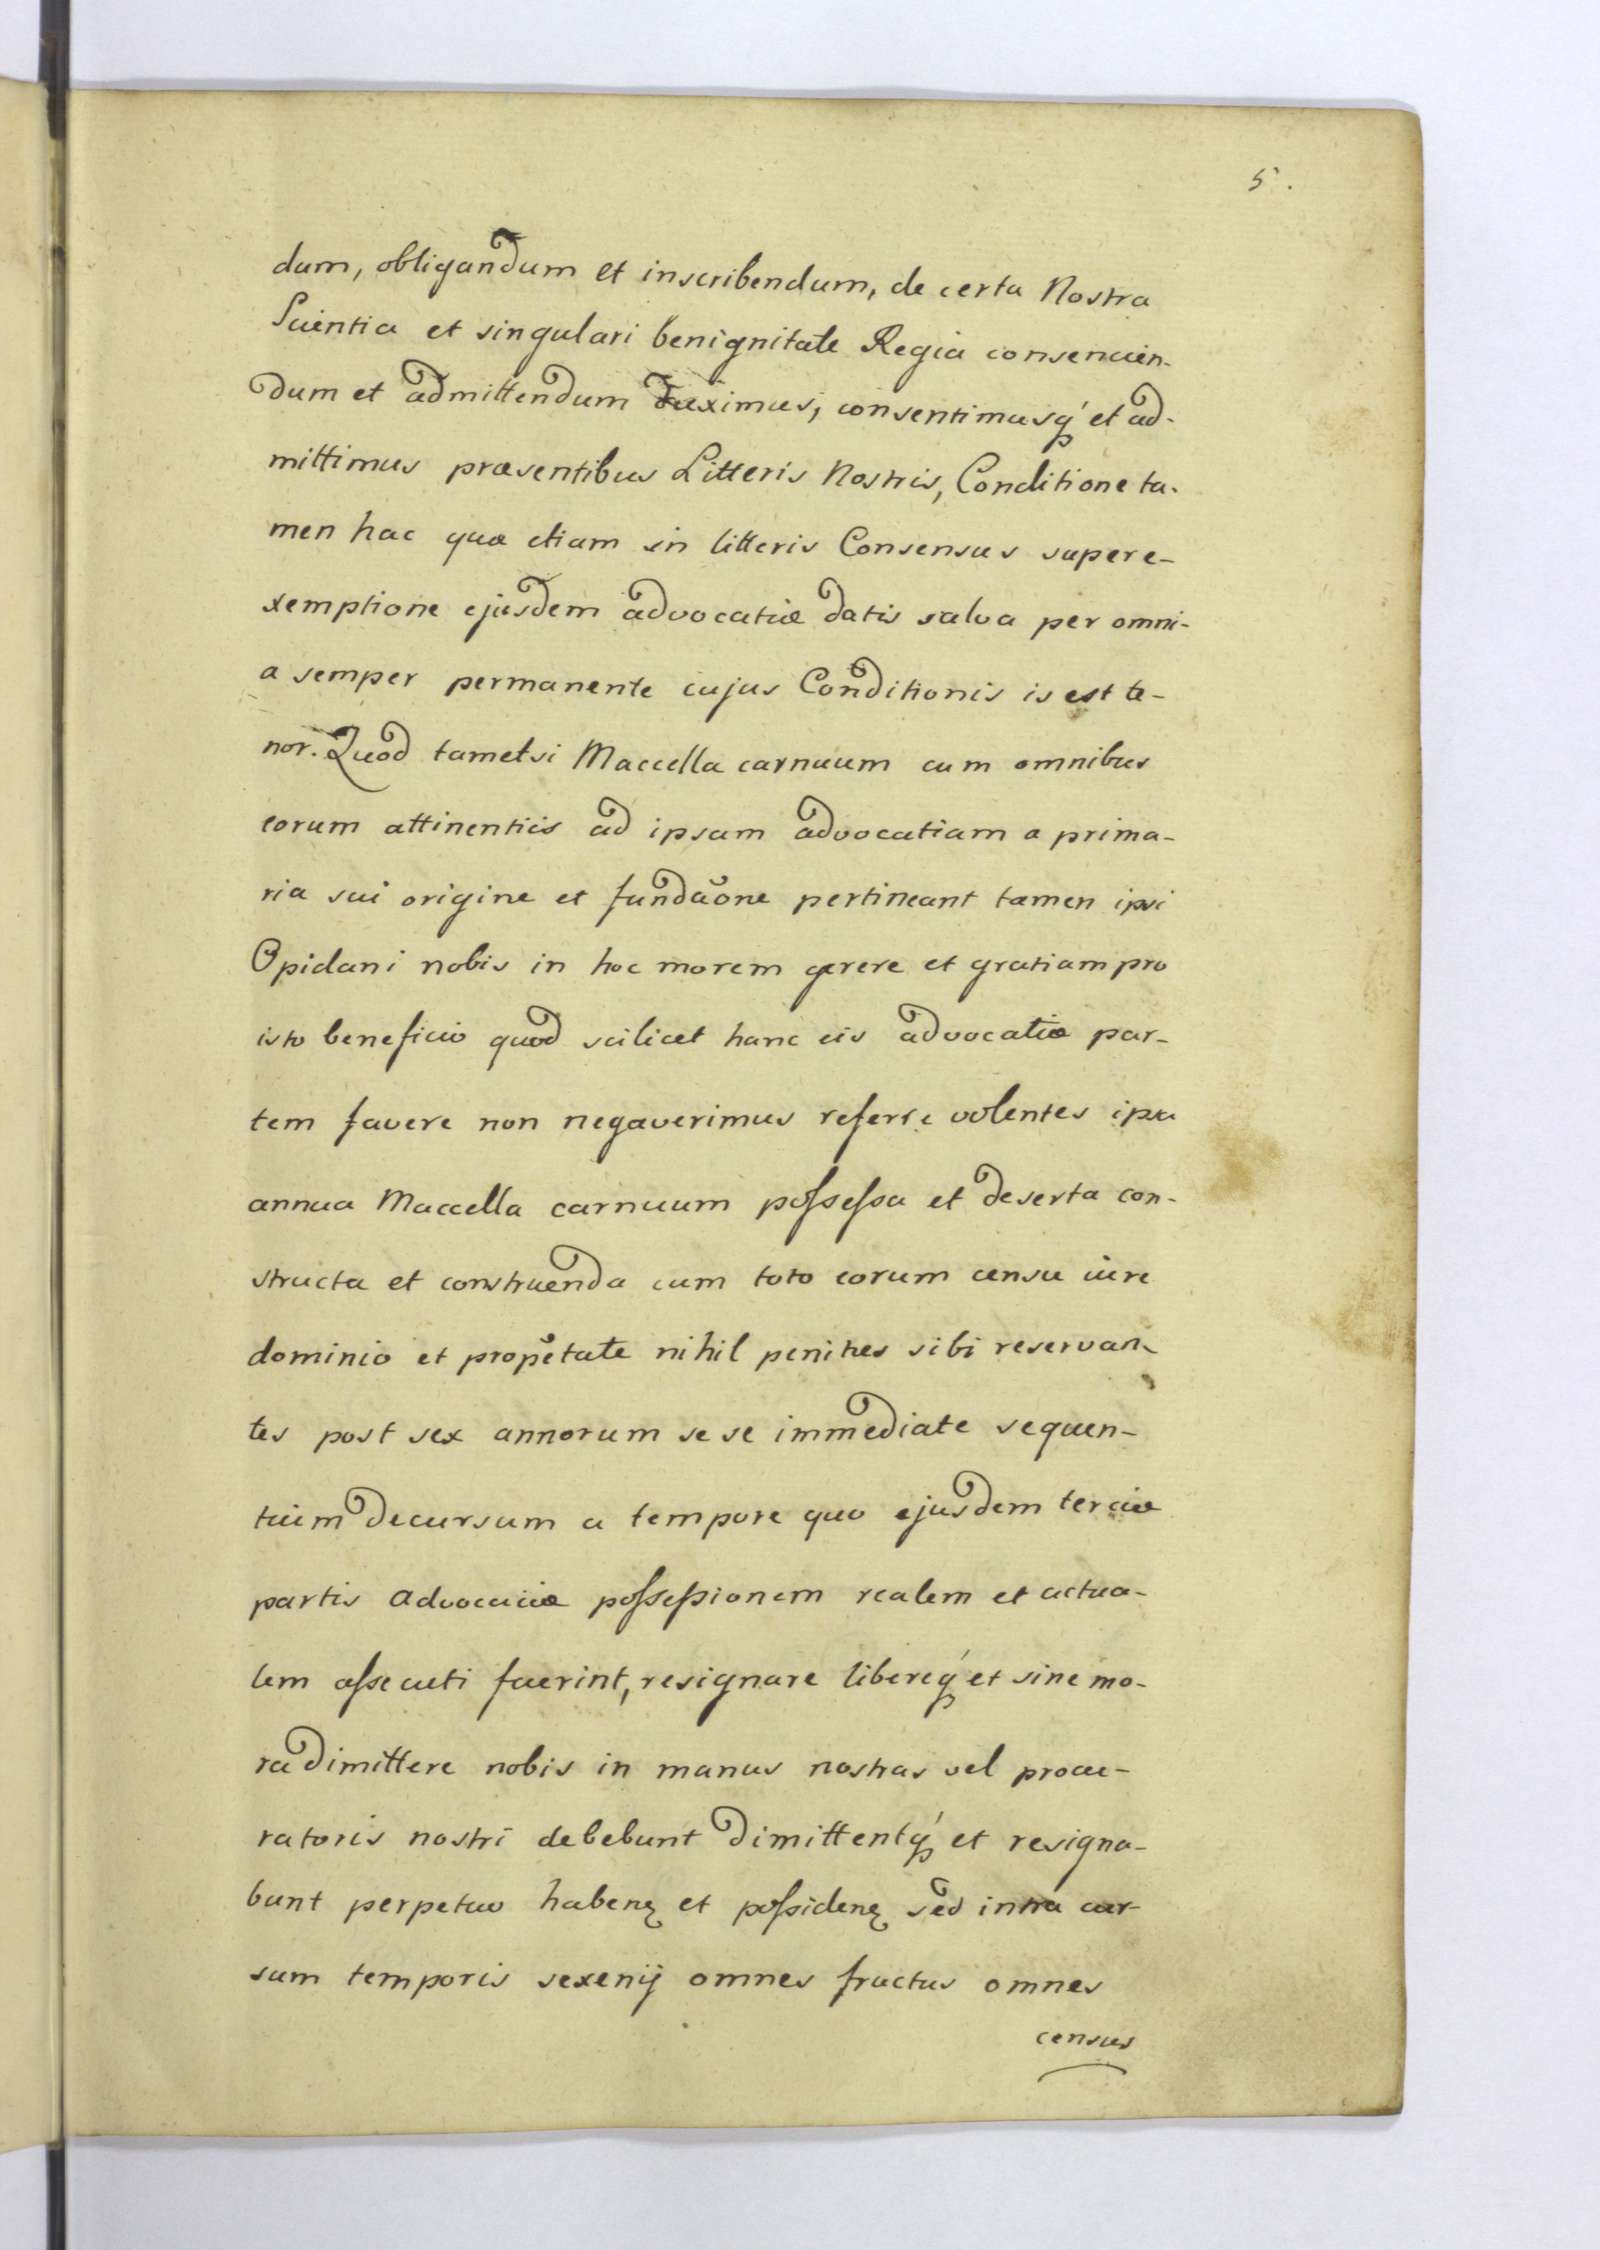 5.
dum, obligandum et inscribendum, de certa Nostra
Scientia et singulari benignitate Regia consencien-
dum et admittendum duximus, consentimusq́ et ad-
mittimus præsentibus Litteris Nostris, Conditione ta-
men hac quæ etiam in litteris Consensus super e-
xemptione ejusdem advocatiæ datis salva per omni-
a semper permanente cujus Conditionis is est te-
nor. Quod tametsi Maccella carnium cum omnibus
eorum attinentiis ad ipsam advocatiam a prima-
ria sui origine et fundaõne pertineant tamen ipsi
Opidani nobis in hoc morem gerere et gratiam pro
isto beneficio quod scilicet hanc eis advocatiæ par-
tem favere non negaverimus referre volentes ipsa
annua Maccella carnium possessa et deserta con-
structa et construenda cum toto eorum censu iure
dominio et propẽtate nihil penitus sibi reservan-
tes post sex annorum se se immediate sequen-
tium decursum a tempore quo ejusdem terciæ
partis advocaciæ possessionem realem et actua-
lem assecuti fuerint, resignare libereq́ et sine mo-
ra dimittere nobis in manus nostras vel procu-
ratoris nostri debebunt dimittentq́ et resigna-
bunt perpetuo habenꝫ et possidenꝫ sed intra cur-
sum temporis sexenij omnes fructus omnes
census